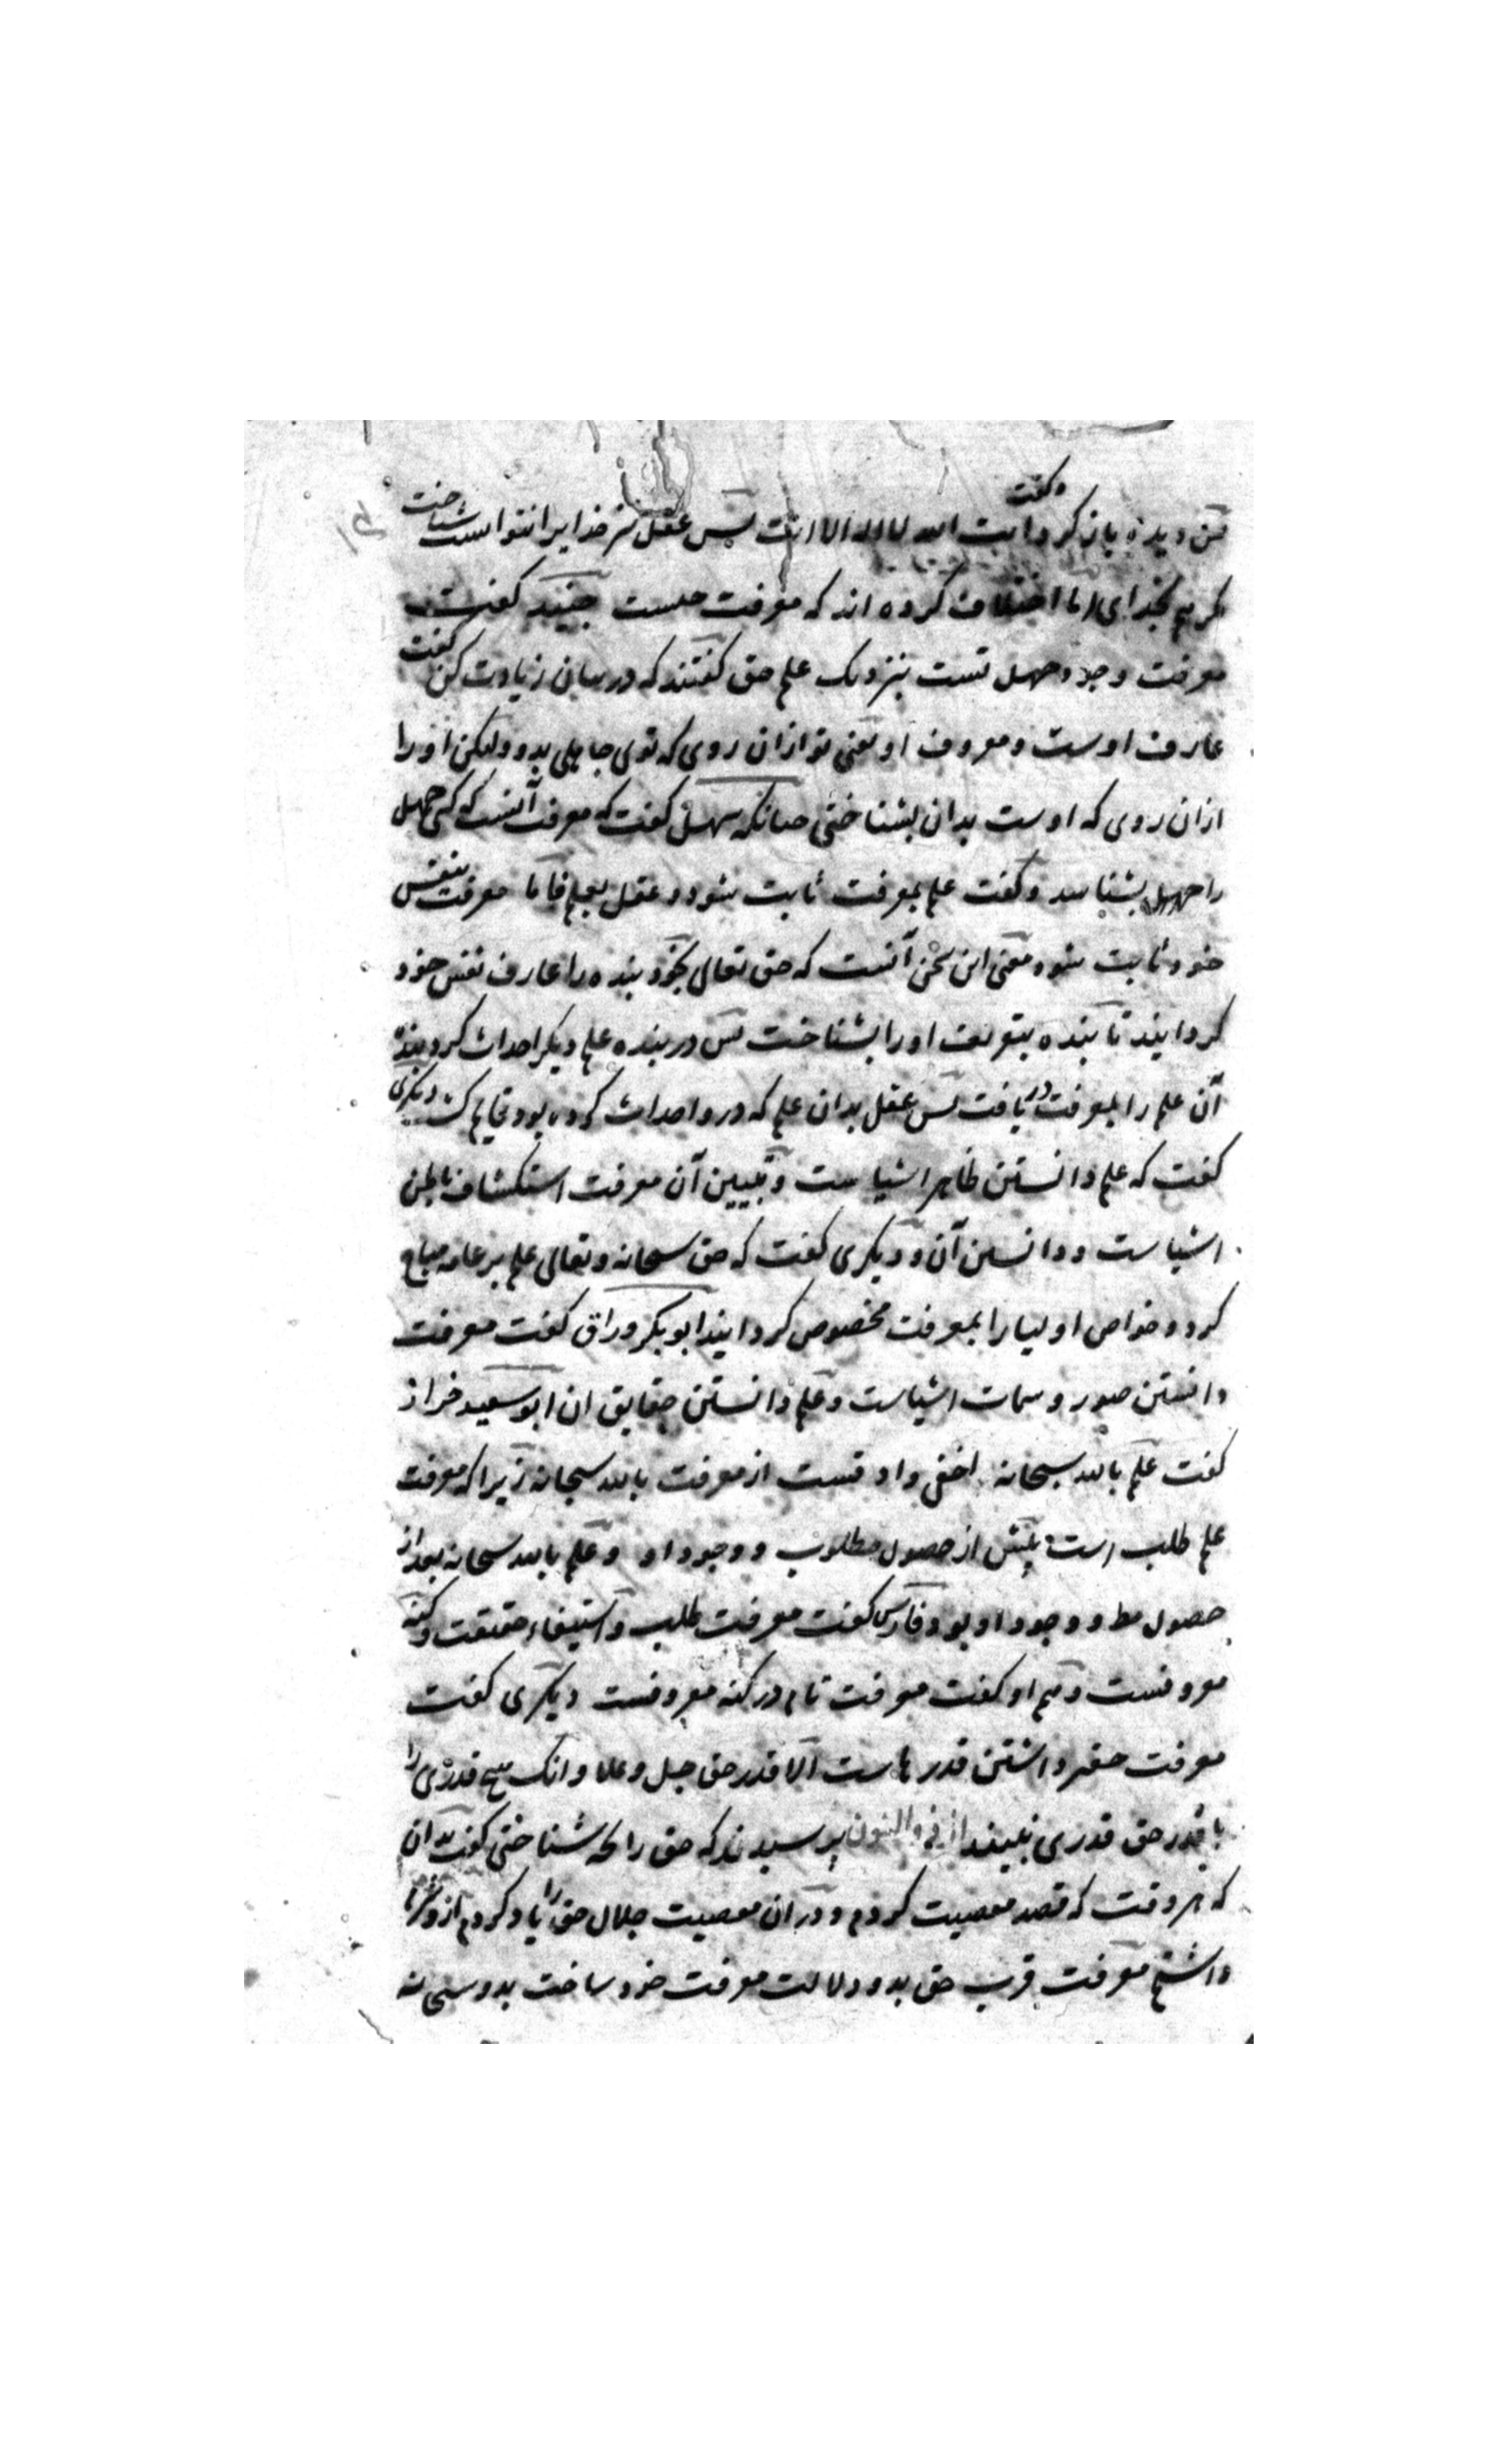 پس دیده باز کرد و گفت انت الله لا اله الا انت پس عقل نیز خدایرا نتوانست شناخت
مگر هم بخدای اما اختلاف کرده اند که معرفت چیست جنید گفت
معرفت وجود جهل تست بنزدیک علم حق گفتند که در بیان زیادت کن گفت
عارف اوست و معروف او یعنی تو ازان روی که توی جاهلی بدو ولیکن او را
ازان روی که اوست بدان بشناختی چنانکه سهل گفت که معرفت آنست که کسی جهل
را جهل بشناسد و گفت علم بمعرفت ثابت شود و عقل بعلم فاما معرفت بنفس
خود ثابت شود معنی این سخن آنست که حق تعالی بخود بنده را عارف نفس خود
گردانید تا بنده بتعریف او را بشناخت پس در بنده علم دیگر احداث کرد بنده
آن علم را بمعرفت دریافت پس عقل بدان علم که درو احداث کرده بود قایم گشت دیگری
گفت که علم دانستن ظاهر اشیاست و تبیین آن معرفت استکشاف باطن
اشیاست و دانستن آن و دیگری گفت که حق سبحانه و تعالی علم بر عامه مباح
کرد و خواص اولیا را بمعرفت مخصوص گردانید ابو بکر وراق گفت معرفت
دانستن صور و سمات اشیاست و علم دانستن حقایق ان ابو سعید خراز
گفت علم بالله سبحانه اخفی و ادقست از معرفت بالله سبحانه زیرا که معرفت
علم طلب است پیش از حصول مطلوب و وجود او و علم بالله سبحانه بعد از
حصول مط و وجود او بود فارس گفت معرفت طلب و استیفاء حقیقت و کنه
معروفست و هم او گفت معرفت تام در کنه معروفست دیگری گفت
معرفت حقیر داشتن قدرهاست الا قدر حق جل و علا و انک هیچ قدری را
با قدر حق قدری نبیند از ذو النون پرسیدند که حق را بچه شناختی گفت بدان
که هر وقت که قصد معصیت کردم و در آن معصیت جلال حق را یاد کردم ازو شرم
داشتم معرفت قرب حق بدو دلالت معرفت خود ساخت بدو سبحانه